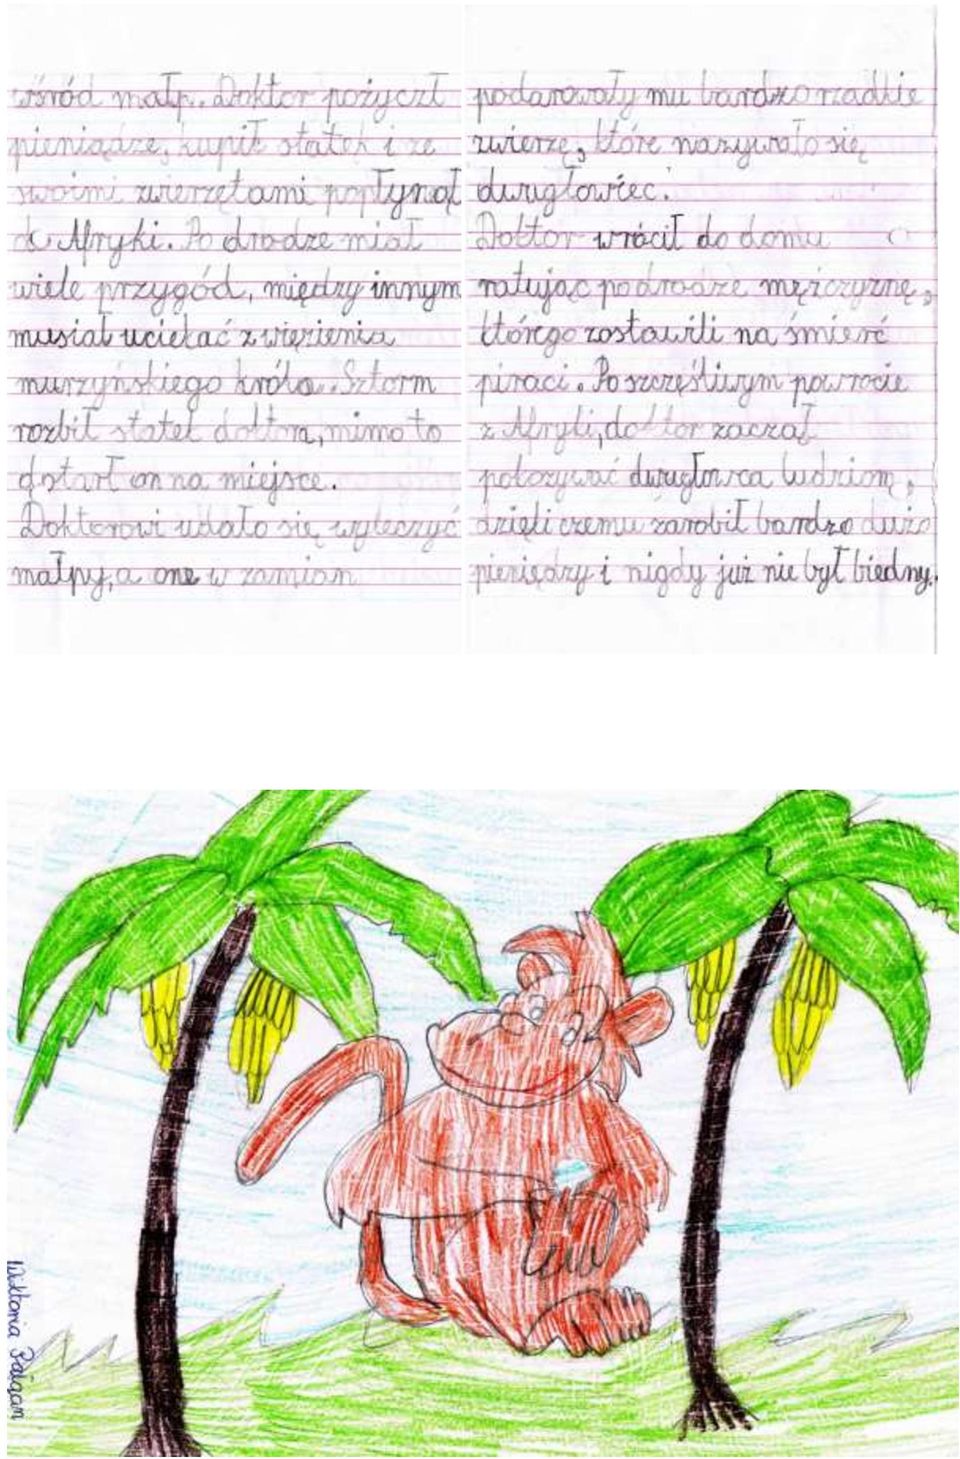 wśród małp. Doktor pożyczł
pieniądze, kupił statek i ze
swoimi zwierzętami popłynął
do Afryki. Po drodze miał
wiele przygód, między innym
musiał uciekać z więzienia
murzyńskiego króla. Sztorm
rozbił statek doktora, mimo to
dotarł on na miejsce.
Doktorowi udało się wyleczyć
małpy, a one w zamian
podarowały mu bardzo rzadkie
zwierzę, które nazywało się
dwugłowiec.
Doktor wrócił do domu
ratując po drodze mężczyznę,
którego zostawili na śmierć
piraci. Po szczęśliwym powrocie
z Afryki, doktor zaczął
pokazywać dwugłowca ludziom,
dzięki czemu zarobił bardzo dużo
pieniędzy i nigdy już nie był biedny.
Wiktoria